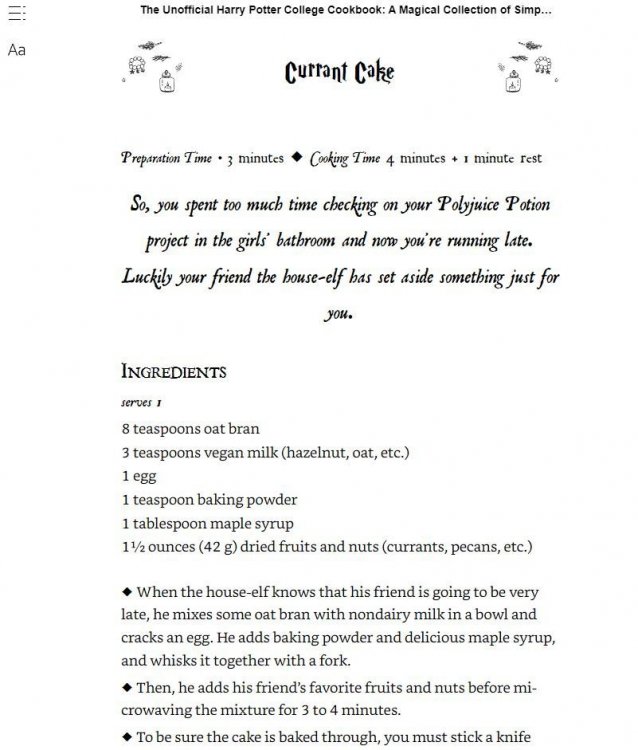 The Unofficial Harry Potter College Cookbook: A Magical Collection of Simp...
Aa
Currant Cake
Preparation Time • 3 minutes ◆ Cooking Time 4 minutes + 1 minute rest
So, you spent too much time checking on your Polyjuice Potion
project in the girls' bathroom and now you're running late.
Luckily your friend the house-elf has set aside something just for
you.
Ingredients
serves 1
8 teaspoons oat bran
3 teaspoons vegan milk (hazelnut, oat, etc.)
1 egg
1 teaspoon baking powder
1 tablespoon maple syrup
1½ ounces (42 g) dried fruits and nuts (currants, pecans, etc.)
◆ When the house-elf knows that his friend is going to be very
late, he mixes some oat bran with nondairy milk in a bowl and
cracks an egg. He adds baking powder and delicious maple syrup,
and whisks it together with a fork.
◆ Then, he adds his friend's favorite fruits and nuts before mi-
crowaving the mixture for 3 to 4 minutes.
◆ To be sure the cake is baked through, you must stick a knife